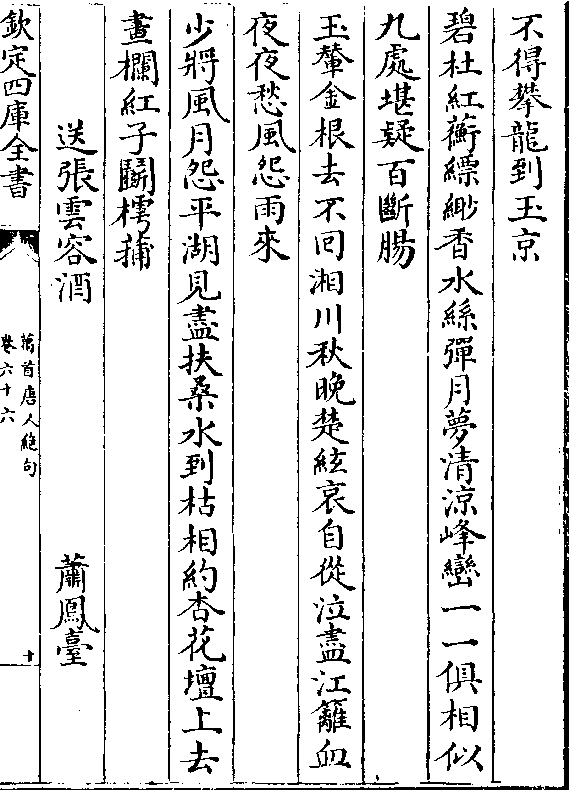 不得攀龍到玉京
碧杜紅蘅縹緲香水絲彈月夢清涼峰巒一一俱相似
九處堪疑百斷腸
玉輦金根去不回湘川秋晚楚絃哀自從泣盡江蘺血
夜夜愁風怨雨來
少將風月怨平湖見盡扶桑水到枯相約杏花壇上去
畫欄紅子鬭樗蒱
送張雲容酒　蕭鳳臺
欽定四庫全書
萬首唐人絶句
卷六十六
十